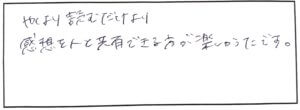 やはり読むだけより
感想を人と共有できる方が楽しそうです。